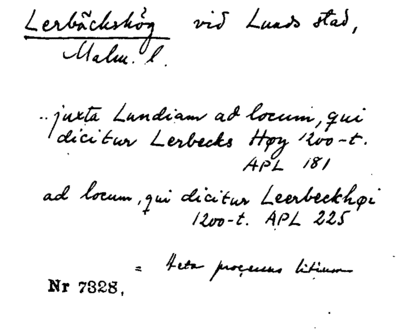 Lerbäckshög vid Lunds stad,
Malm. l.
.. juxta Lundiam ad locum, qui
dicitur Lerbecks Høy 1200-t.
APL 181
ad locum, qui dicitur Leerbeckhøi
1200-t. APL 225
= Acta processus litium
Nr 7328.